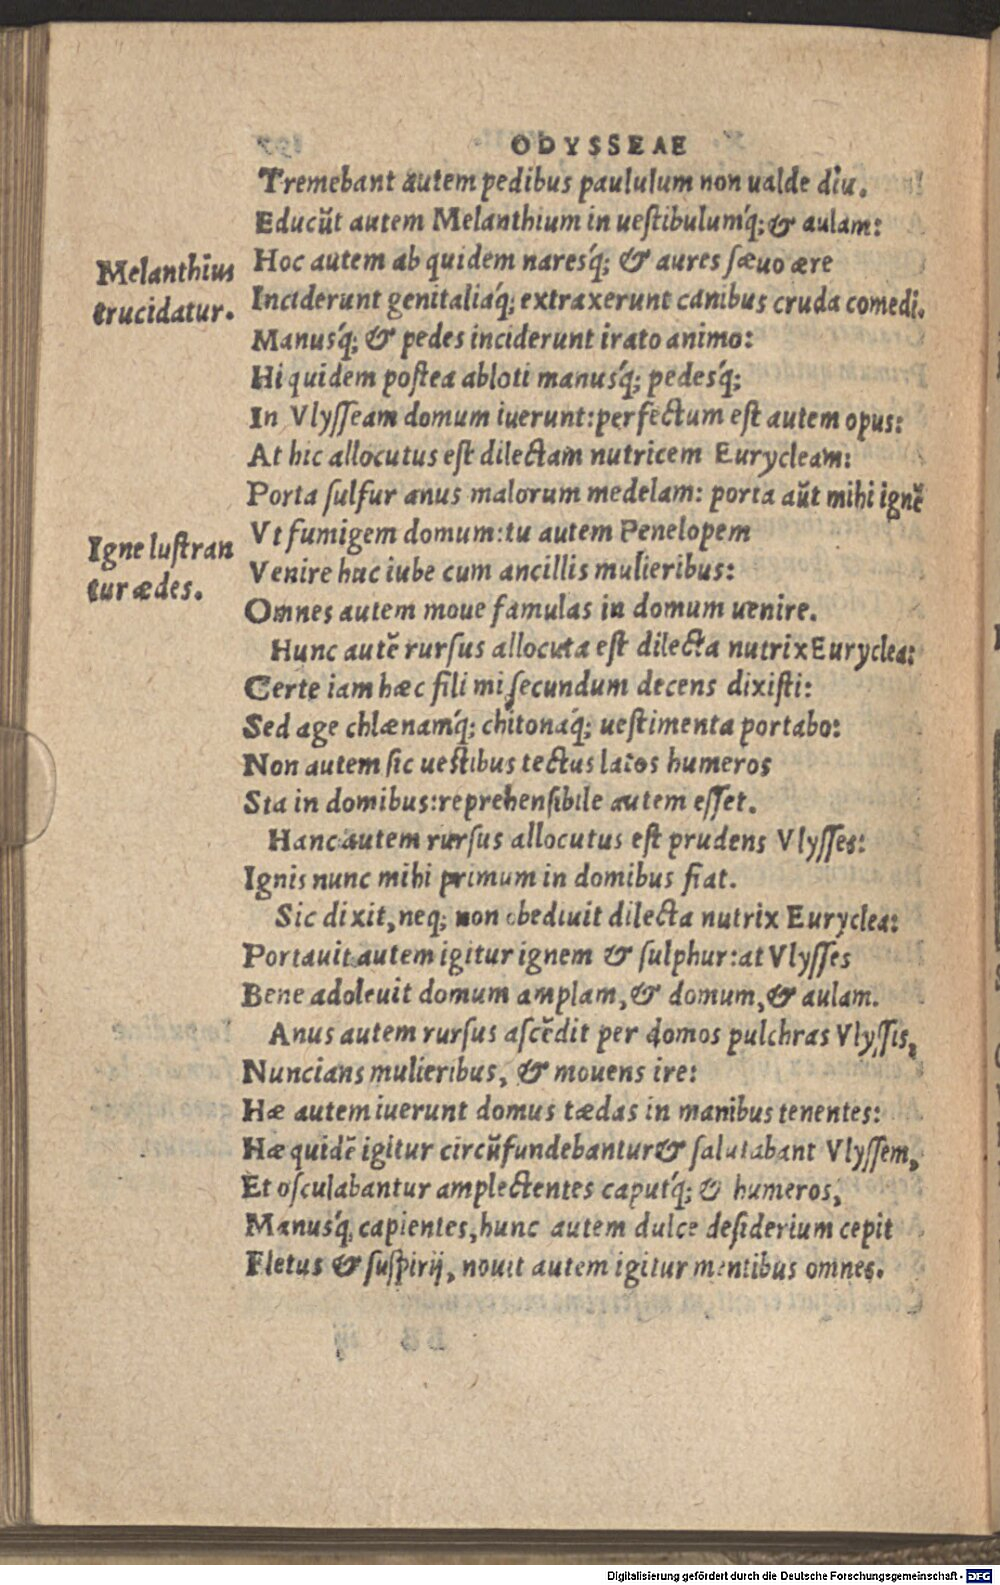 ODYSSEAE
Tremebant autem pedibus paululum non ualde diu.
Educũt autem Melanthium in uestibulumq́;& aulam:
Melanthius
trucidatur.
Hoc autem ab quidem naresq́; & aures sæuo ære
Inciderunt genitaliaq́; extraxerunt canibus cruda comedi.
Manusq́; & pedes inciderunt irato animo:
Hi quidem postea abloti manusq́; pedesq́;
In Vlysseam domum iuerunt:perfectum est autem opus:
At hic allocutus est dilectam nutricem Eurycleam:
Porta sulfur anus malorum medelam: porta aũt mihi ignẽ
Igne lustran
tur ædes.
Vt fumigem domum:tu autem Penelopem
Venire huc iube cum ancillis mulieribus:
Omnes autem moue famulas in domum uenire.
Hunc autẽ rursus allocuta est dilecta nutrix Euryclea:
Certe iam hæc fili mi secundum decens dixisti:
Sed age chlænamq́; chitonaq́; uestimenta portabo:
Non autem sic uestibus tectus latos humeros
Sta in domibus:reprehensibile autem esset.
Hanc autem rursus allocutus est prudens Vlysses:
Ignis nunc mihi primum in domibus fiat.
Sic dixit,neq; non obediuit dilecta nutrix Euryclea:
Portauit autem igitur ignem & sulphur:at Vlysses
Bene adoleuit domum amplam,& domum,& aulam.
Anus autem rursus ascẽdit per domos pulchras Vlyssis,
Nuncians mulieribus, & mouens ire:
Hæ autem iuerunt domus tædas in manibus tenentes:
Hæ quidẽ igitur circũfundebantur& salutabant Vlyssem,
Et osculabantur amplectentes caputq́; & humeros,
Manusq́; capientes,hunc autem dulce desiderium cepit
Fletus & suspirij, nouit autem igitur mentibus omnes.
Digitalisierung gefördert durch die Deutsche Forschungsgemeinschaft - DFG